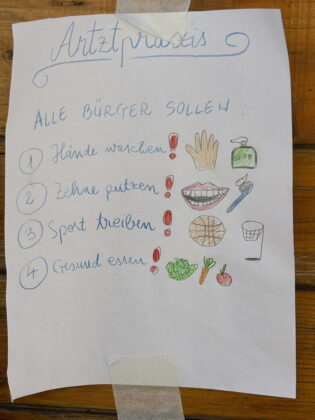 Artztpraxis
ALLE BÜRGER SOLLEN:
1 Hände waschen! SEIFE
2 Zehne putzen!
3 Sport treiben!
4 Gesund essen!